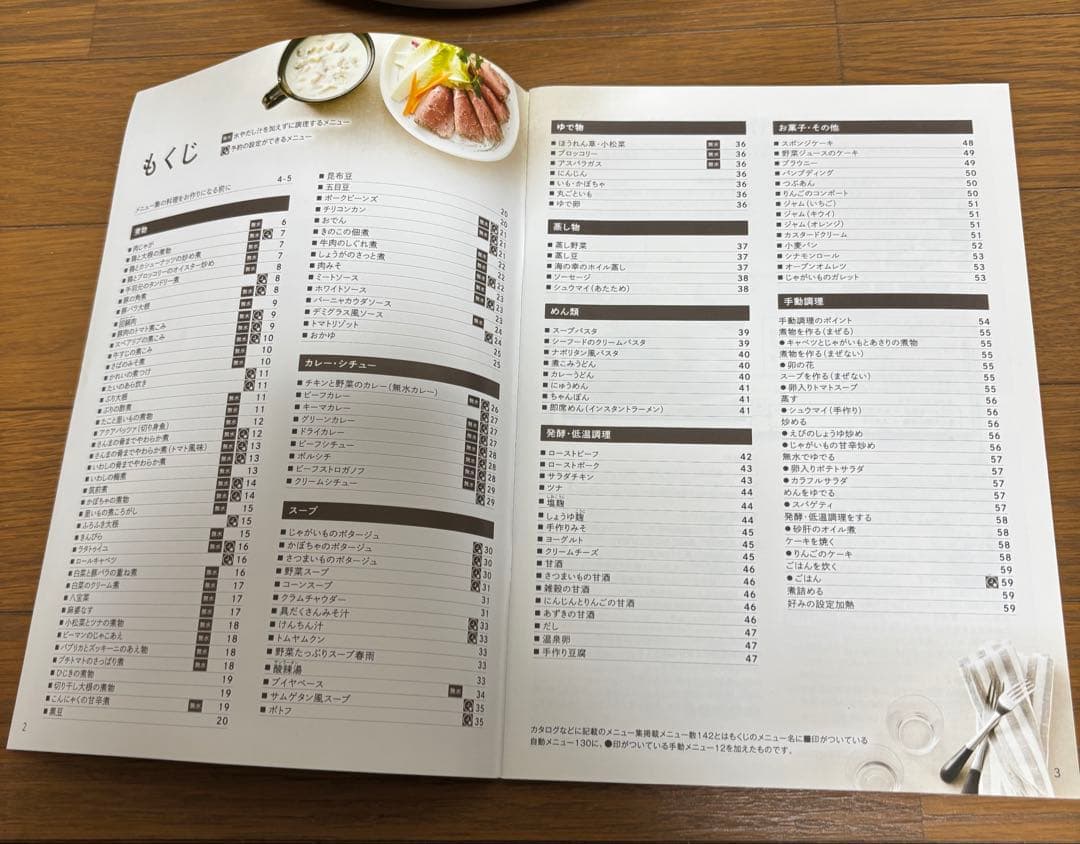 もくじ
無水 水やだし汁を加えずに調理するメニュー
予約の設定ができるメニュー
メニュー集の料理をお作りになる前に 4-5
煮物
■肉じゃが 無水 6
■鶏と大根の煮物 無水 7
■鶏とカシューナッツの炒め煮 7
■鶏とブロッコリーのオイスター炒め 無水 7
■手羽元のタンドリー煮 無水 8
■豚の角煮 8
■豚バラ大根 無水 8
■回鍋肉 無水 9
■豚肉のトマト煮こみ 無水 9
■スペアリブの煮こみ 無水 9
■牛すじの煮こみ 10
■さばのみそ煮 無水 10
■かれいの煮つけ 無水 10
■たいのあら炊き 11
■ぶり大根 11
■ぶりの酢煮 無水 11
■たこと里いもの煮物 無水 11
■アクアパッツァ(切り身魚) 無水 12
■さんまの骨までやわらか煮 無水 12
■さんまの骨までやわらか煮(トマト風味) 無水 13
■いわしの骨までやわらか煮 無水 13
■いわしの梅煮 無水 13
■筑前煮 無水 14
■かぼちゃの煮物 無水 14
■里いもの煮ころがし 無水 15
■ふろふき大根 15
■きんぴら 無水 15
■ラタトゥイユ 無水 16
■ロールキャベツ 16
■白菜と豚バラの重ね煮 無水 16
■白菜のクリーム煮 無水 17
■八宝菜 無水 17
■麻婆なす 無水 17
■小松菜とツナの煮物 無水 18
■ピーマンのじゃこあえ 無水 18
■パプリカとズッキーニのあえ物 無水 18
■プチトマトのさっぱり煮 無水 18
■ひじきの煮物 19
■切り干し大根の煮物 19
■こんにゃくの甘辛煮 無水 19
■黒豆 20
2
■昆布豆 20
■五目豆 20
■ポークビーンズ 21
■チリコンカン 無水 21
■おでん 21
■きのこの佃煮 無水 22
■牛肉のしぐれ煮 無水 22
■しょうがのさっと煮 無水 22
■肉みそ 無水 22
■ミートソース 無水 23
■ホワイトソース 無水 23
■バーニャカウダソース 23
■デミグラス風ソース 24
■トマトリゾット 25
■おかゆ 25
カレー・シチュー
■チキンと野菜のカレー(無水カレー) 無水 26
■ビーフカレー 27
■キーマカレー 無水 27
■グリーンカレー 27
■ドライカレー 無水 28
■ビーフシチュー 28
■ボルシチ 28
■ビーフストロガノフ 無水 29
■クリームシチュー 29
スープ
■じゃがいものポタージュ 30
■かぼちゃのポタージュ 30
■さつまいものポタージュ 30
■野菜スープ 31
■コーンスープ 31
■クラムチャウダー 31
■具だくさんみそ汁 33
■けんちん汁 33
■トムヤムクン 33
■野菜たっぷりスープ春雨 33
■酸辣湯 34
■ブイヤベース 無水 34
■サムゲタン風スープ 35
■ポトフ 35
ゆで物
■ほうれん草・小松菜 無水 36
■ブロッコリー 無水 36
■アスパラガス 無水 36
■にんじん 36
■いも・かぼちゃ 36
■丸ごといも 36
■ゆで卵 36
蒸し物
■蒸し野菜 37
■蒸し豆 37
■海の幸のホイル蒸し 37
■ソーセージ 38
■シュウマイ(あたため) 38
めん類
■スープパスタ 39
■シーフードのクリームパスタ 39
■ナポリタン風パスタ 40
■煮こみうどん 40
■カレーうどん 40
■にゅうめん 41
■ちゃんぽん 41
■即席めん(インスタントラーメン) 41
発酵・低温調理
■ローストビーフ 42
■ローストポーク 43
■サラダチキン 43
■ツナ 44
■塩麹 44
■しょうゆ麹 44
■手作りみそ 44
■ヨーグルト 45
■クリームチーズ 45
■甘酒 45
■さつまいもの甘酒 46
■雑穀の甘酒 46
■にんじんとりんごの甘酒 46
■あずきの甘酒 46
■だし 47
■温泉卵 47
■手作り豆腐 47
お菓子・その他
■スポンジケーキ 48
■野菜ジュースのケーキ 49
■ブラウニー 49
■パンプディング 50
■つぶあん 50
■りんごのコンポート 50
■ジャム(いちご) 51
■ジャム(キウイ) 51
■ジャム(オレンジ) 51
■カスタードクリーム 51
■小麦パン 52
■シナモンロール 53
■オープンオムレツ 53
■じゃがいものガレット 53
手動調理
手動調理のポイント 54
煮物を作る(まぜる) 55
●キャベツとじゃがいもとあさりの煮物 55
煮物を作る(まぜない) 55
●卯の花 55
スープを作る(まぜない) 55
●卵入りトマトスープ 55
蒸す 56
●シュウマイ(手作り) 56
炒める 56
●えびのしょうゆ炒め 56
●じゃがいもの甘辛炒め 56
無水でゆでる 57
●卵入りポテトサラダ 57
●カラフルサラダ 57
めんをゆでる 57
●スパゲティ 57
発酵・低温調理をする 58
●砂肝のオイル煮 58
ケーキを焼く 58
●りんごのケーキ 58
ごはんを炊く 59
●ごはん 59
煮詰める 59
好みの設定加熱 59
カタログなどに記載のメニュー集掲載メニュー数142とはもくじのメニュー名に■印がついている
自動メニュー130に、●印がついている手動メニュー12を加えたものです。
3